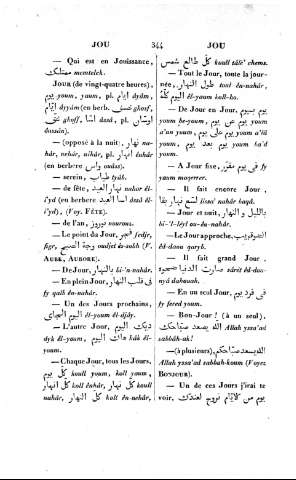 JOU 344 JOU
— Qui est en Jouissance,
متملك mentelek.
JOUR (de vingt-quatre heures),
يوم youm, yaum, pl. ايام dyâm,
ايام dyyâm (en berb.
— (opposé à la nuit) نهار na-
hár, nehâr, nihâr, pl.
(en berbere واس ouass).
— serbis, ثياب tyâb.
— de fête, نهار العيد nahâr êl-
i'yd (en berbere اسا العيد
i'yd), (Voy. FÊTE).
— de l'an, نوروز nourouz.
— Le point du Jour, فجر fedjr,
figr, وجه الصبح oudjet es-subh (V.
AUBE, AURORE).
— De Jour, بالنهار bi-'n-nahár.
— En plein Jour, في قلب النهار
fy qalb ên-nahár.
— Un des Jours prochains,
اليوم الجاي êl-youm êl-djây.
— L'autre Jour, ديك اليوم
dyk êl-youm, هاك اليوم hâk êl-
youm.
— Chaque Jour, tous les Jours,
كل يوم koull youm, koll youm,
كل نهار koull enhâr, كل نهار koll
nahâr,
كل طالع شمس koull tâle' chems.
— Tout le Jour, toute la jour-
née, طول النهار toul êu-nahár,
اليوم كله êl-youm koll-ho.
— De Jour en Jour, يوم بيوم
youm be-youm, يوم عن يوم youm
a'an youm, يوم على يوم youm a'lä
youm, يوم بعد يوم youm ba'd
youm.
— A Jour fixe, في يوم مقرر fy
yaum moqerrer.
— Il fait encore Jour,
لسا نهار بقا lissa' nahár baqâ.
— Jour et nuit, بالليل و النهار
bi-'l-léyl ou-ên-nahár.
— Le Jour approche,
êd-douu qaryb.
— Il fait grand Jour,
صارت الدنيا ضحوة sâret êd-dou-
nyâ dahouéh.
— En un seul Jour, في فرد يوم
fy ferd youm.
— Bon-Jour! (à un seul),
الله يسعد صباحك Allah yssa'ad
sabbâh-ak!
— (à plusieurs), الله يسعد صباحكم
Allah yssa'ad sabbah-koum (Voyez
BONJOUR).
— Un de ces Jours j'irai te
voir, يوم من كلايام نروح لعندك,